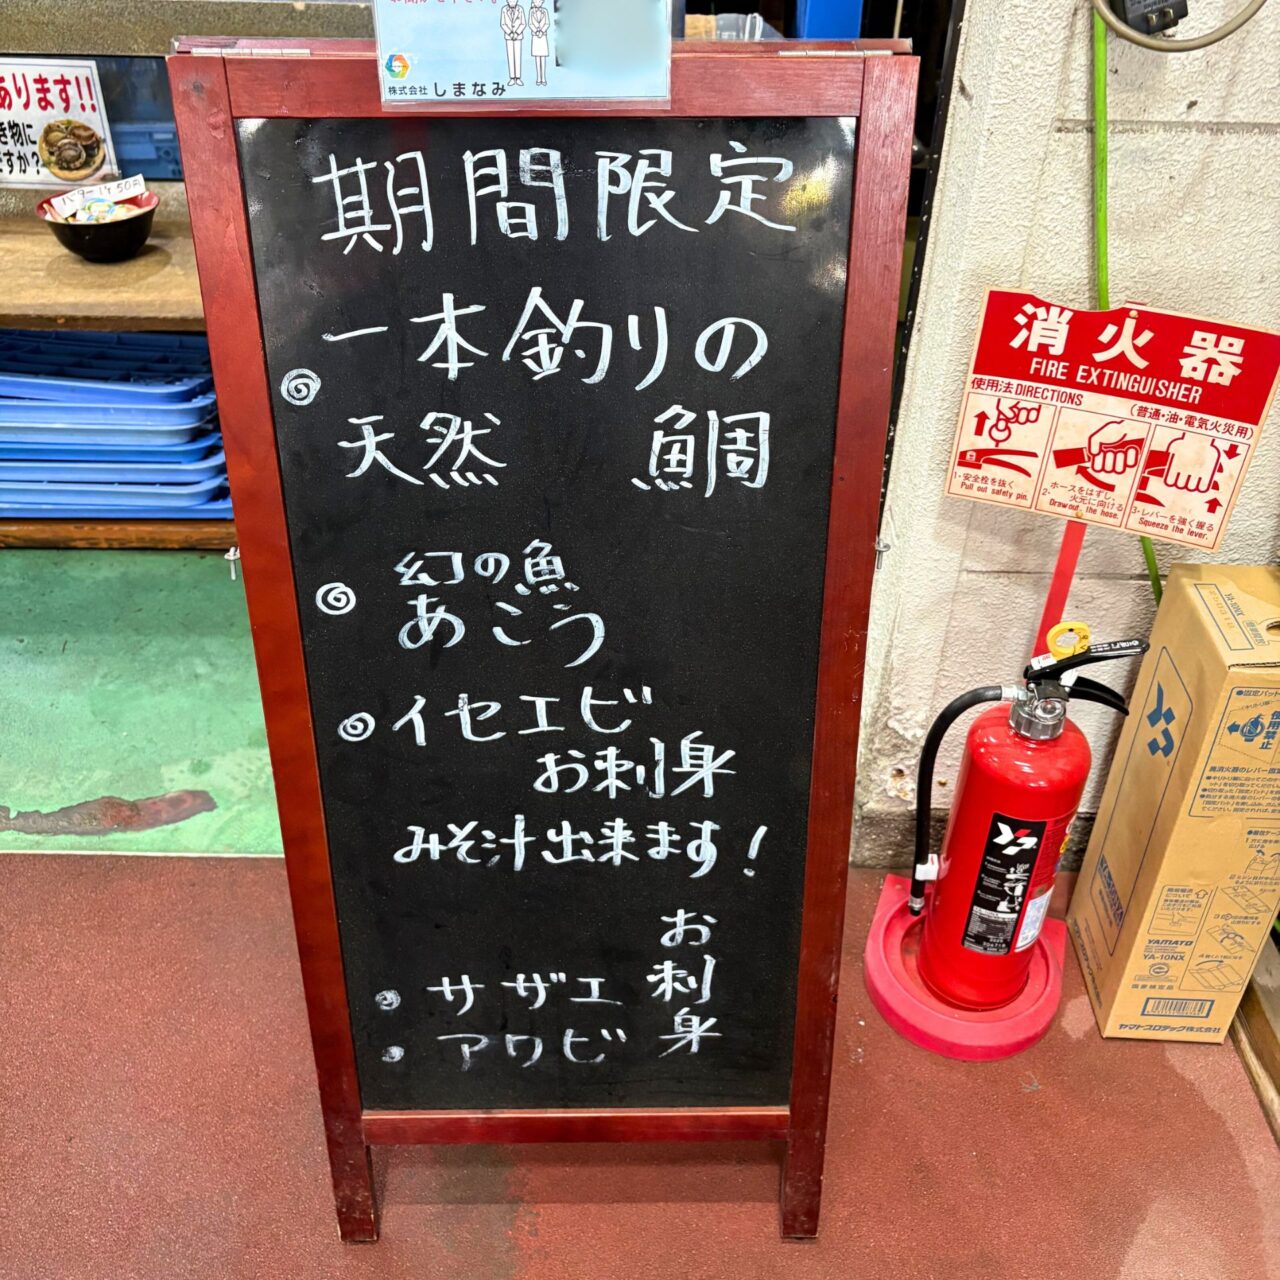 株式会社 しまなみ
あります!!
き物に
ですか?
バター1ケ50円
期間限定
一本釣りの
天然 鯛
幻の魚
あこう
イセエビ
お刺身
みそ汁出来ます!
サザエ
アワビ
お刺身
消火器
FIRE EXTINGUISHER
使用法 DIRECTIONS
(普通・油・電気火災用)
1・安全栓を抜く
Pull out safety pin.
2・ホースをはずし、
火元に向ける
Draw out the hose.
3・レバーを強く握る
Squeeze the lever.
YA-10NX
使用禁止
YAMATO
YA-10NX
ヤマトプロテック株式会社